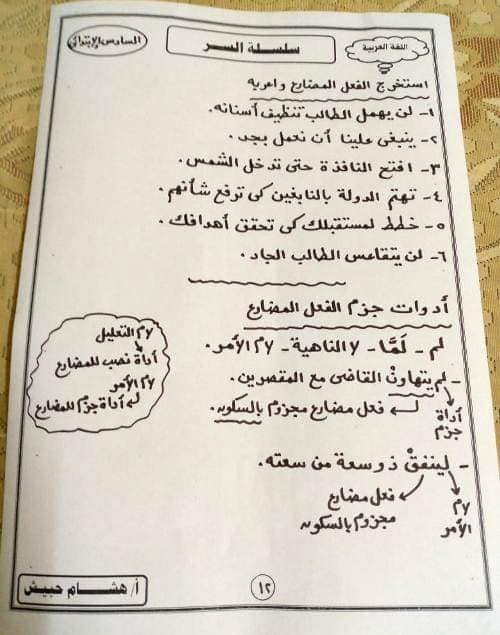 اللغة العربية
سلسلة السر
السادس الابتدائى
استخرج الفعل المضارع واعربه
١- لن يهمل الطالب تنظيف أسنانه.
٢- ينبغى علينا أن نعمل بجد.
٣- افتح النافذة حتى تدخل الشمس.
٤- تهتم الدولة بالنابغين كى ترفع شأنهم.
٥- خطط لمستقبلك كى تحقق أهدافك.
٦- لن يتقاعس الطالب الجاد.
أدوات جزم الفعل المضارع
لم - لمَّا - لا الناهية - لام الأمر.
- لم يتهاونْ القاضى مع المقصرين.
أداة جزم
فعل مضارع مجزوم بالسكون.
لام التعليل
أداة نصب للمضارع
لام الأمر
أداة جزم للمضارع
- لينفقْ ذو سعة من سعته.
لام الأمر
فعل مضارع
مجزوم بالسكون
١٢
أ/ هشام حبيش